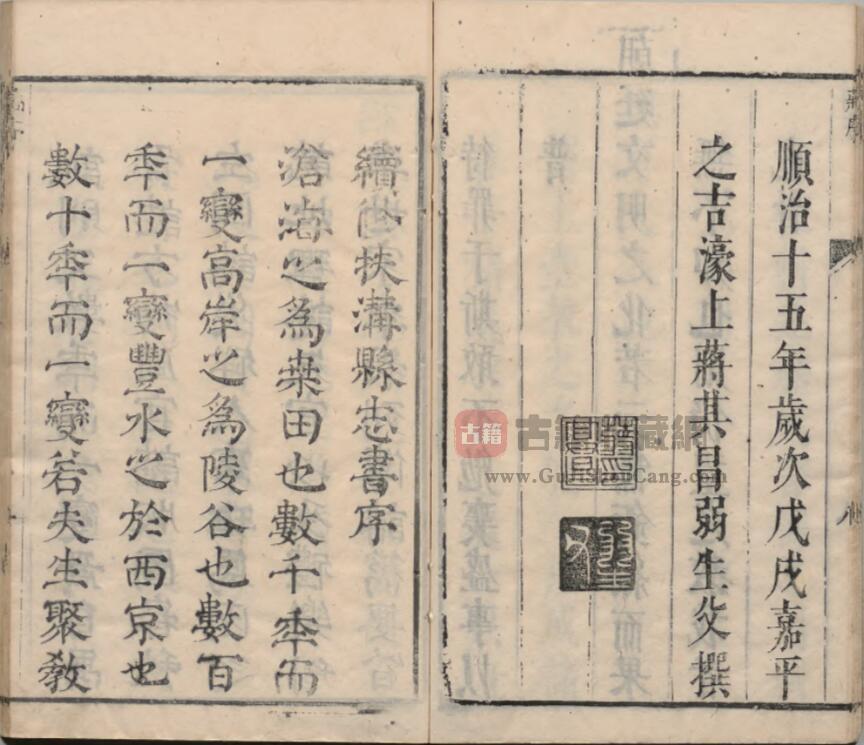 順治十五年歲次戊戌嘉平
之吉濠上蔣其昌弱生父撰
續扶溝縣志書序
滄海之爲桒田也數千秊而
一變高岸之爲陵谷也數百
秊而一變豐水之於西京也
數十秊而一變若夫生聚教
古籍
www.GujiShouCang.com